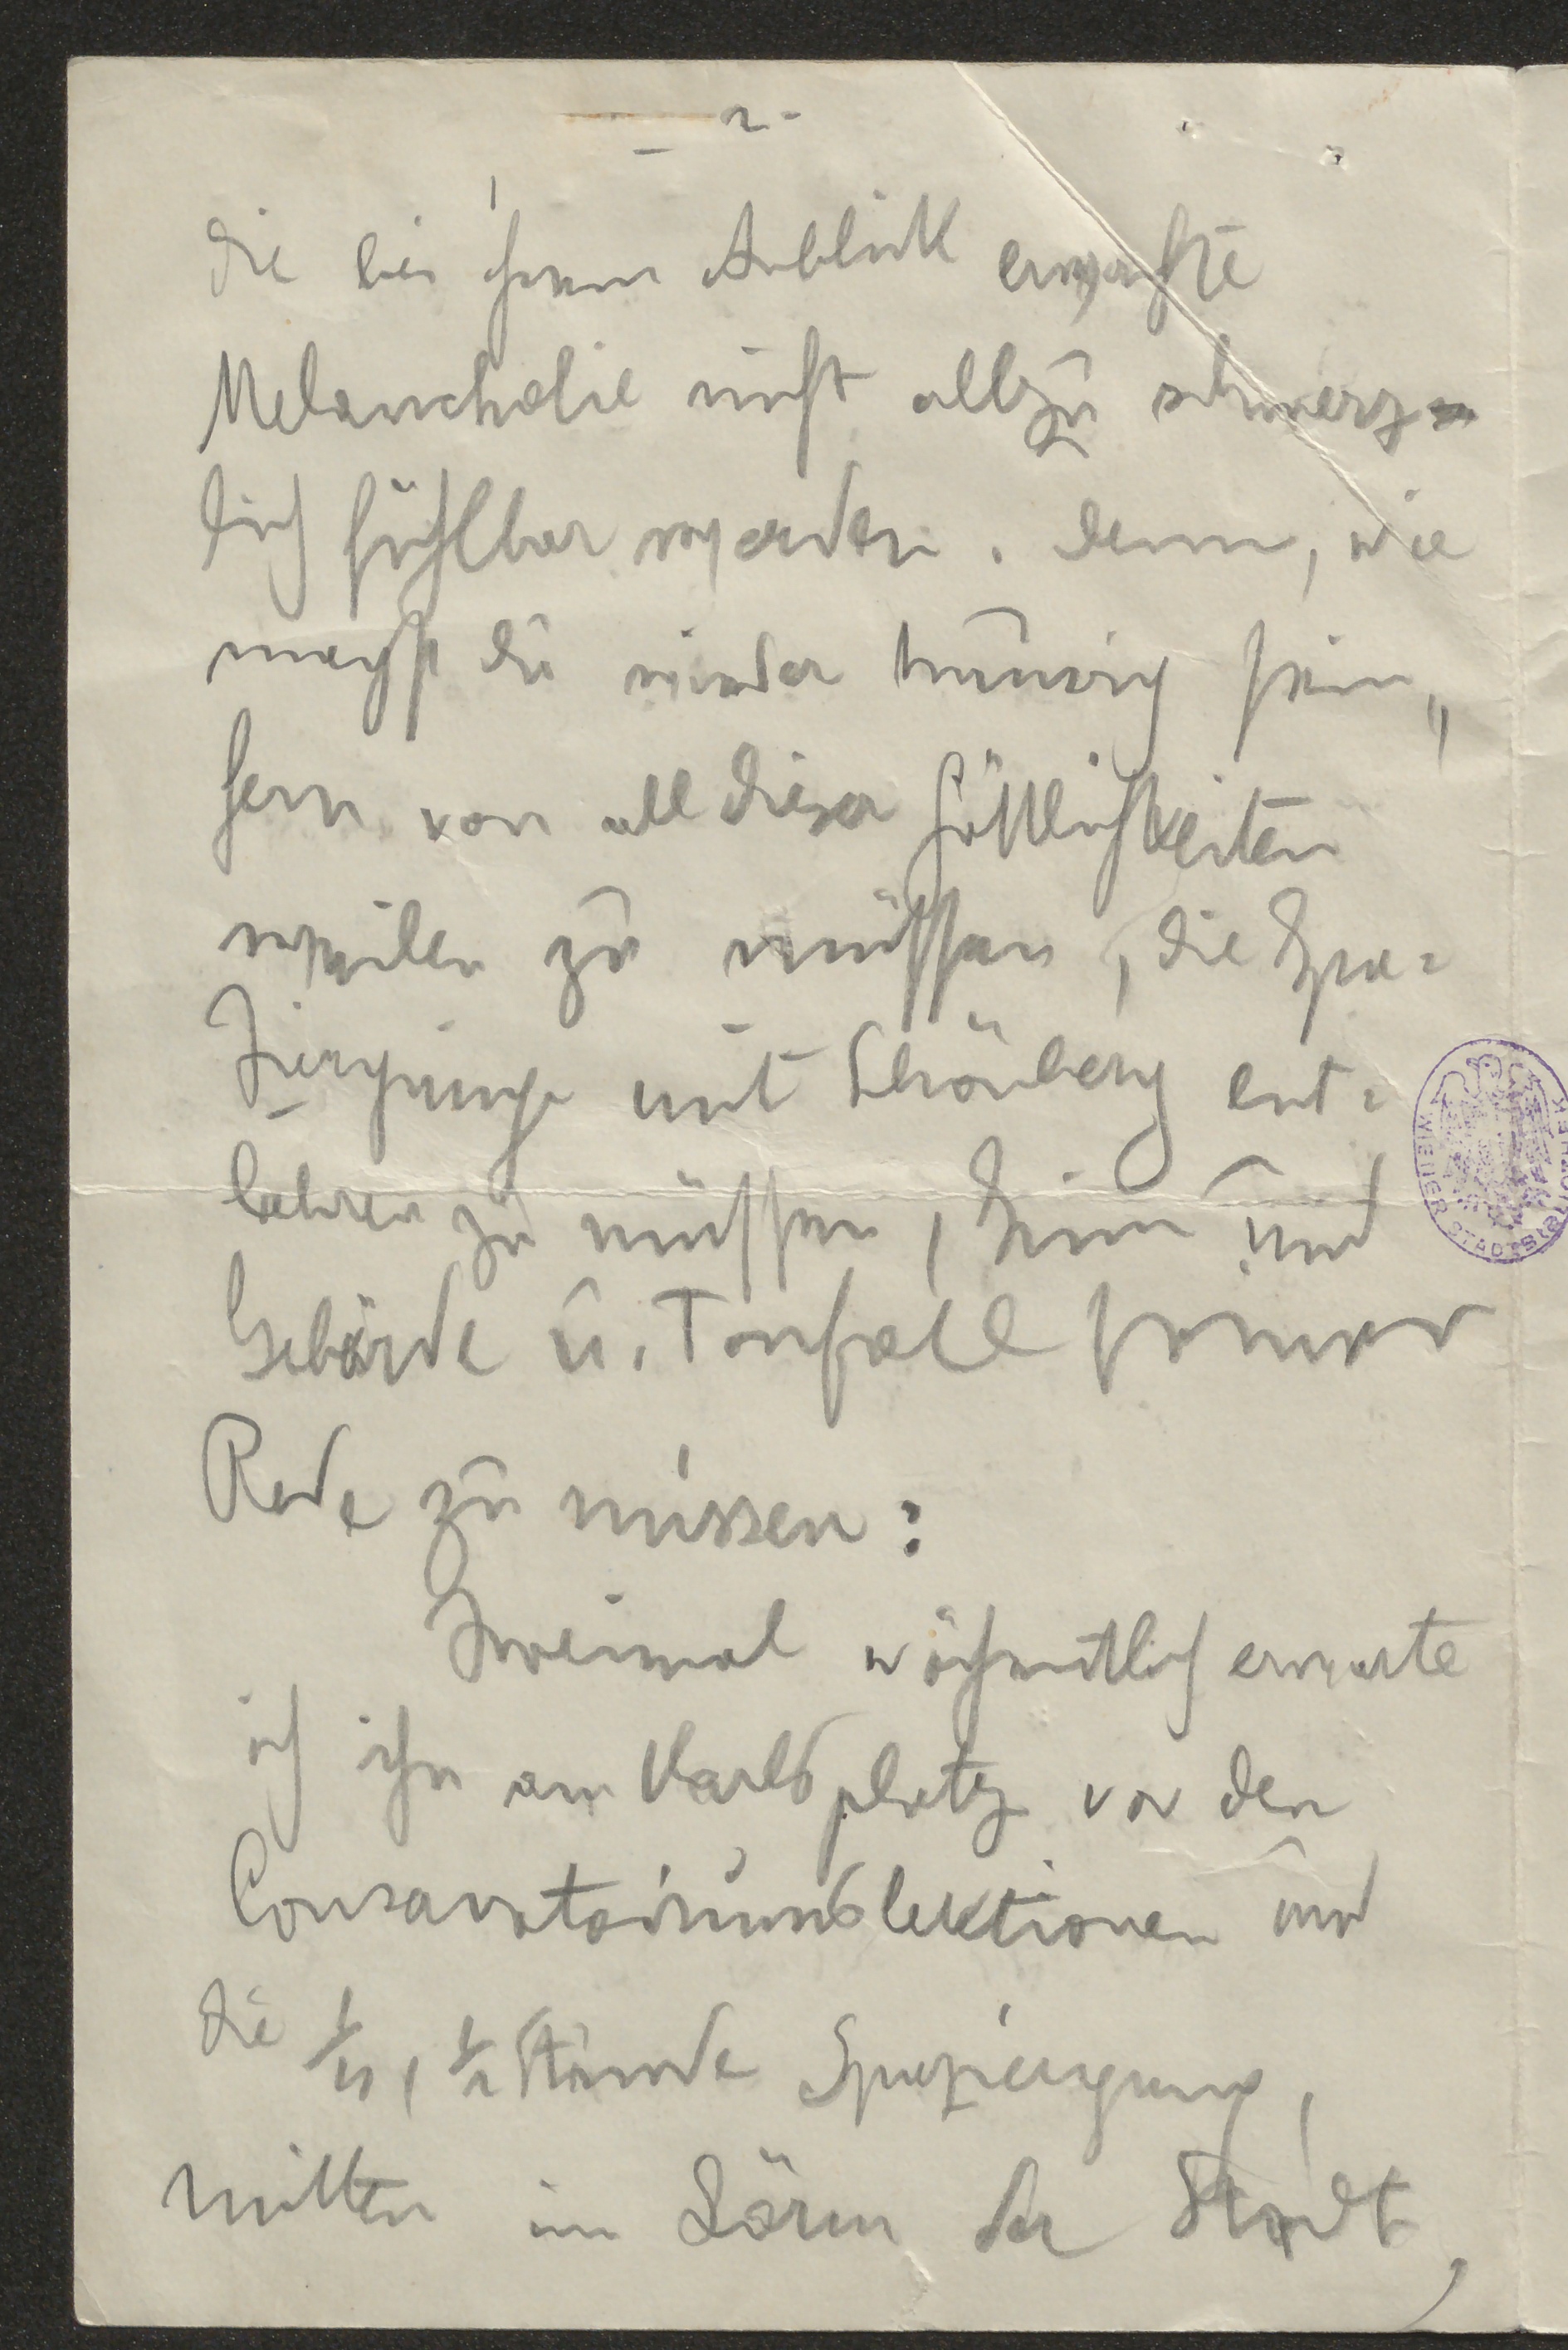 - 2 -
die bei ihrem Anblick erwachte
Melancholie nicht allzu schmerz=
lich fühlbar werden. Denn, wie
magst du minder traurig sein,
fern von all dieser Göttlichkeiten
weilen zu müssen, die Spa=
ziergänge mit Schönberg ent=
behren zu müssen, Sinn und
Gebärde u. Tonfall seiner
Rede zu missen:
Zweimal wöchentlich erwarte
ich ihn am Karlsplatz vor den
Conservatoriumslektionen und
die 1/4, 1/2 Stunde Spaziergang,
mitten im Lärm der Stadt,
WIENER STADTBIBLIOTHEK